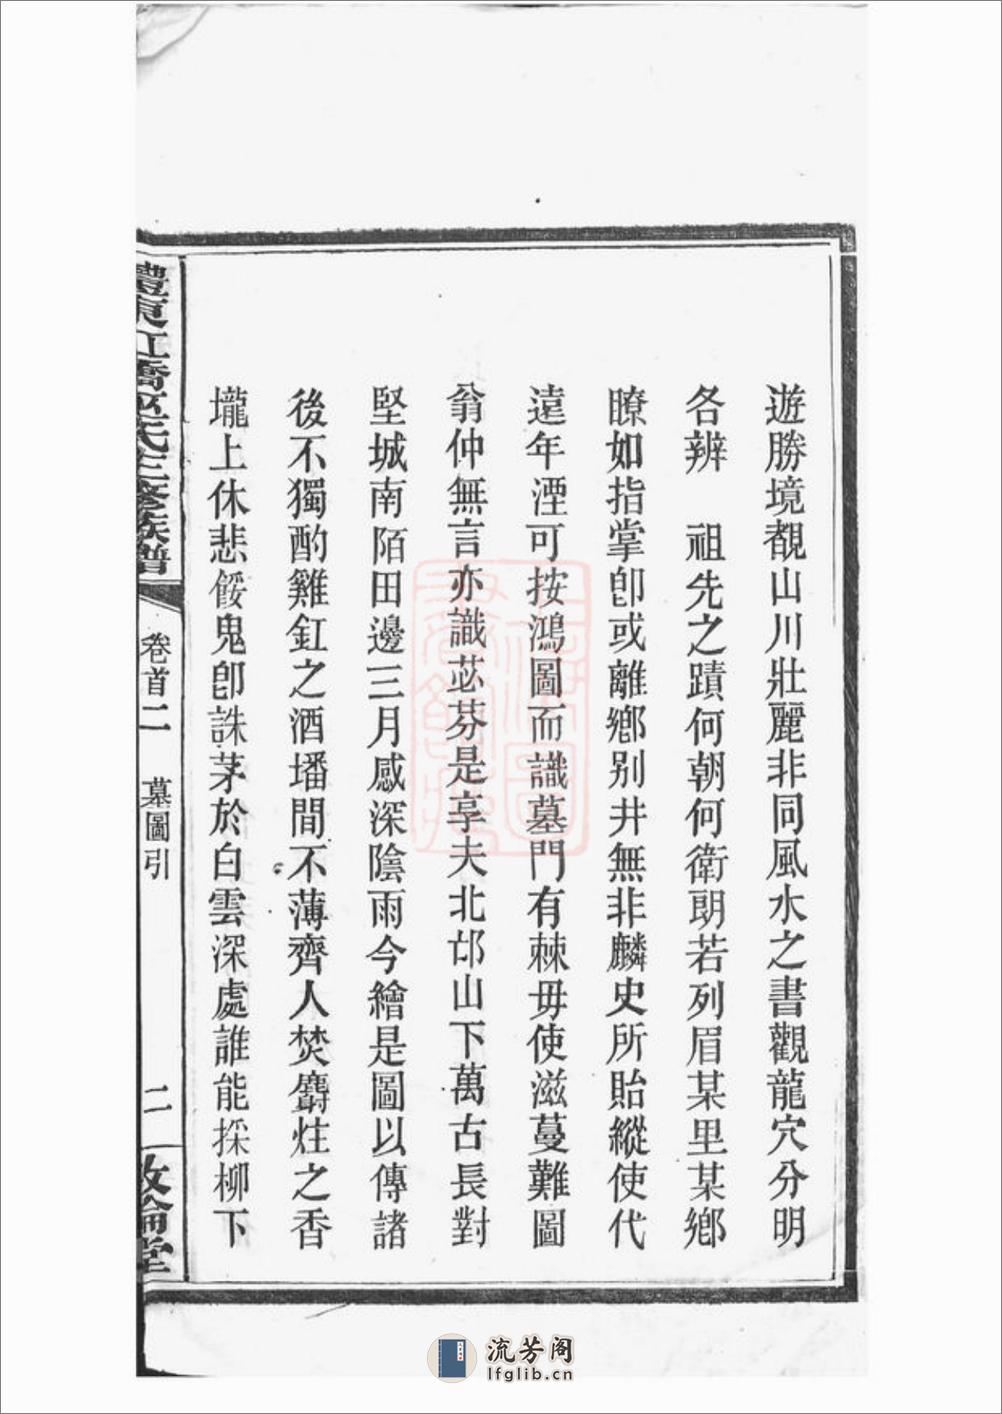 遊勝境覩山川壯麗非同風水之書觀龍穴分明
各辨　祖先之蹟何朝何衛朗若列眉某里某鄉
瞭如指掌卽或離鄉别井無非麟史所貽縱使代
遠年湮可按鴻圖而識墓門有棘毋使滋蔓難圖
翁仲無言亦識苾芬是享夫北邙山下萬古長對
堅城南陌田邊三月感深陰雨今繪是圖以傳諸
後不獨酌雞缸之酒墦間不薄齊人焚麝炷之香
壠上休悲餒鬼卽誅茅於白雲深處誰能採柳下
醴東江橋巫氏三修族譜
卷首二　墓圖引
二
敦倫堂
流芳阁
lfglib.cn